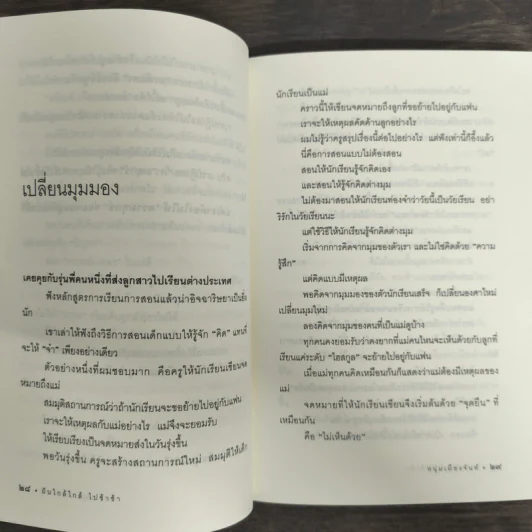 เปลี่ยนมุมมอง
เคยคุยกับรุ่นพี่คนหนึ่งที่ส่งลูกสาวไปเรียนต่างประเทศ
ฟังหลักสูตรการเรียนการสอนแล้วน่าอิจฉาริษยาเป็นยิ่ง
นัก
เขาเล่าให้ฟังถึงวิธีการสอนเด็กแบบให้รู้จัก "คิด" แทนที่
จะให้ "จำ" เพียงอย่างเดียว
ตัวอย่างหนึ่งที่ผมชอบมาก คือครูให้นักเรียนเขียนจด
หมายถึงแม่
สมมุติสถานการณ์ว่าถ้านักเรียนจะขอย้ายไปอยู่กับแฟน
เราจะให้เหตุผลกับแม่อย่างไร แม่จึงจะยอมรับ
ให้เรียบเรียงเป็นจดหมายส่งในวันรุ่งขึ้น
พอวันรุ่งขึ้น ครูจะสร้างสถานการณ์ใหม่ สมมุติให้เด็ก
๒๘ • ฝันใกล้ใกล้ ไปช้าช้า
นักเรียนเป็นแม่
คราวนี้ให้เขียนจดหมายถึงลูกที่ขอย้ายไปอยู่กับแฟน
เราจะให้เหตุผลคัดค้านลูกอย่างไร
ผมไม่รู้ว่าครูสรุปเรื่องนี้ต่อไปอย่างไร แต่ฟังเท่านี้ก็อึ้งแล้ว
นี่คือการสอนแบบไม่ต้องสอน
สอนให้นักเรียนรู้จักคิดเอง
และสอนให้รู้จักคิดต่างมุม
ไม่ต้องมาสอนให้นักเรียนท่องจำว่าวัยนี้เป็นวัยเรียน อย่า
วิริรักในวัยเรียนนะ
แต่ใช้วิธีให้นักเรียนรู้จักคิดต่างมุม
เริ่มจากการคิดจากมุมของตัวเรา และไม่ใช่คิดด้วย "ความ
รู้สึก"
แต่คิดแบบมีเหตุผล
พอคิดจากมุมมองของตัวนักเรียนเสร็จ ก็เปลี่ยนองศาใหม่
เปลี่ยนมุมใหม่
ลองคิดจากมุมของคนที่เป็นแม่ดูบ้าง
ทุกคนคงยอมรับว่าคงยากที่แม่คนไหนจะเห็นด้วยกับลูกที่
เรียนแค่ระดับ "ไฮสกูล" จะย้ายไปอยู่กับแฟน
เมื่อแม่ทุกคนคิดเหมือนกันก็แสดงว่าแม่ต้องมีเหตุผลของ
แม่
จดหมายที่ให้นักเรียนเขียนจึงเริ่มต้นด้วย "จุดยืน" ที่
เหมือนกัน
คือ "ไม่เห็นด้วย"
หนุ่มเมืองจันท์ • ๒๙